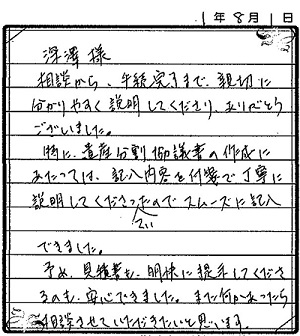 1年8月1日
深澤様
相談から、手続完了まで、親切に
分かりやすく説明してくださり、ありがとう
ございました。
特に、遺産分割協議書の作成に
あたっては、記入内容を付箋で丁寧に
説明してくださったのでスムーズに記入
てい
できました。
予め、見積書も、明快に提示してくださ
るのも、安心できました。また何かあったら
相談させていただきたいと思います。